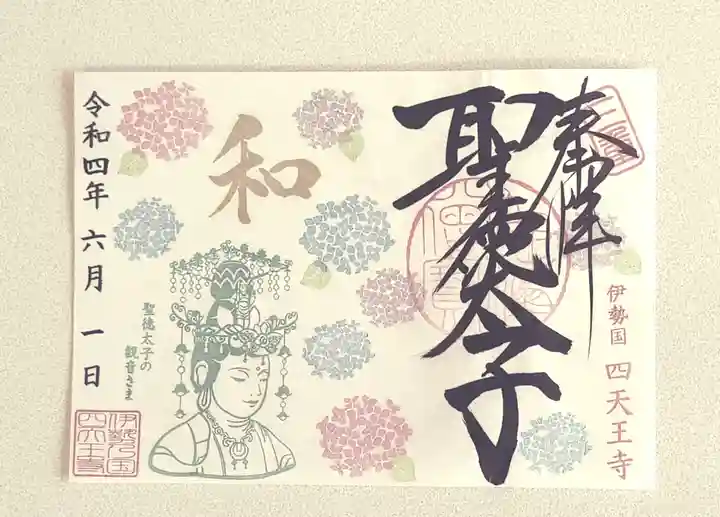 奉拝
聖徳太子
伊勢国 四天王寺
和
聖徳太子の
観音さま
令和四年 六月 一日
伊勢乃国
四天王寺